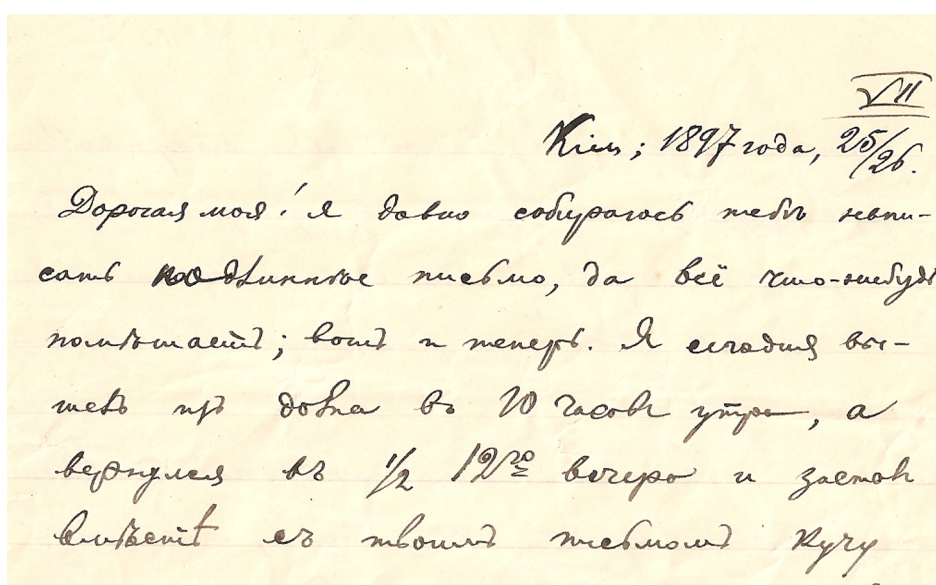 VII
Кіевъ; 1897 года, 25/26.
Дорогая моя! я давно собираюсь тебѣ напи-
сать подлиннѣе письмо, да всё что-нибудь
помѣшаетъ; вотъ и теперь. Я сегодня вы-
шелъ изъ дома въ 10 часовъ утра, а
вернулся въ 1/2 12го вечера и засталъ
вмѣстѣ съ твоимъ письмомъ кучу